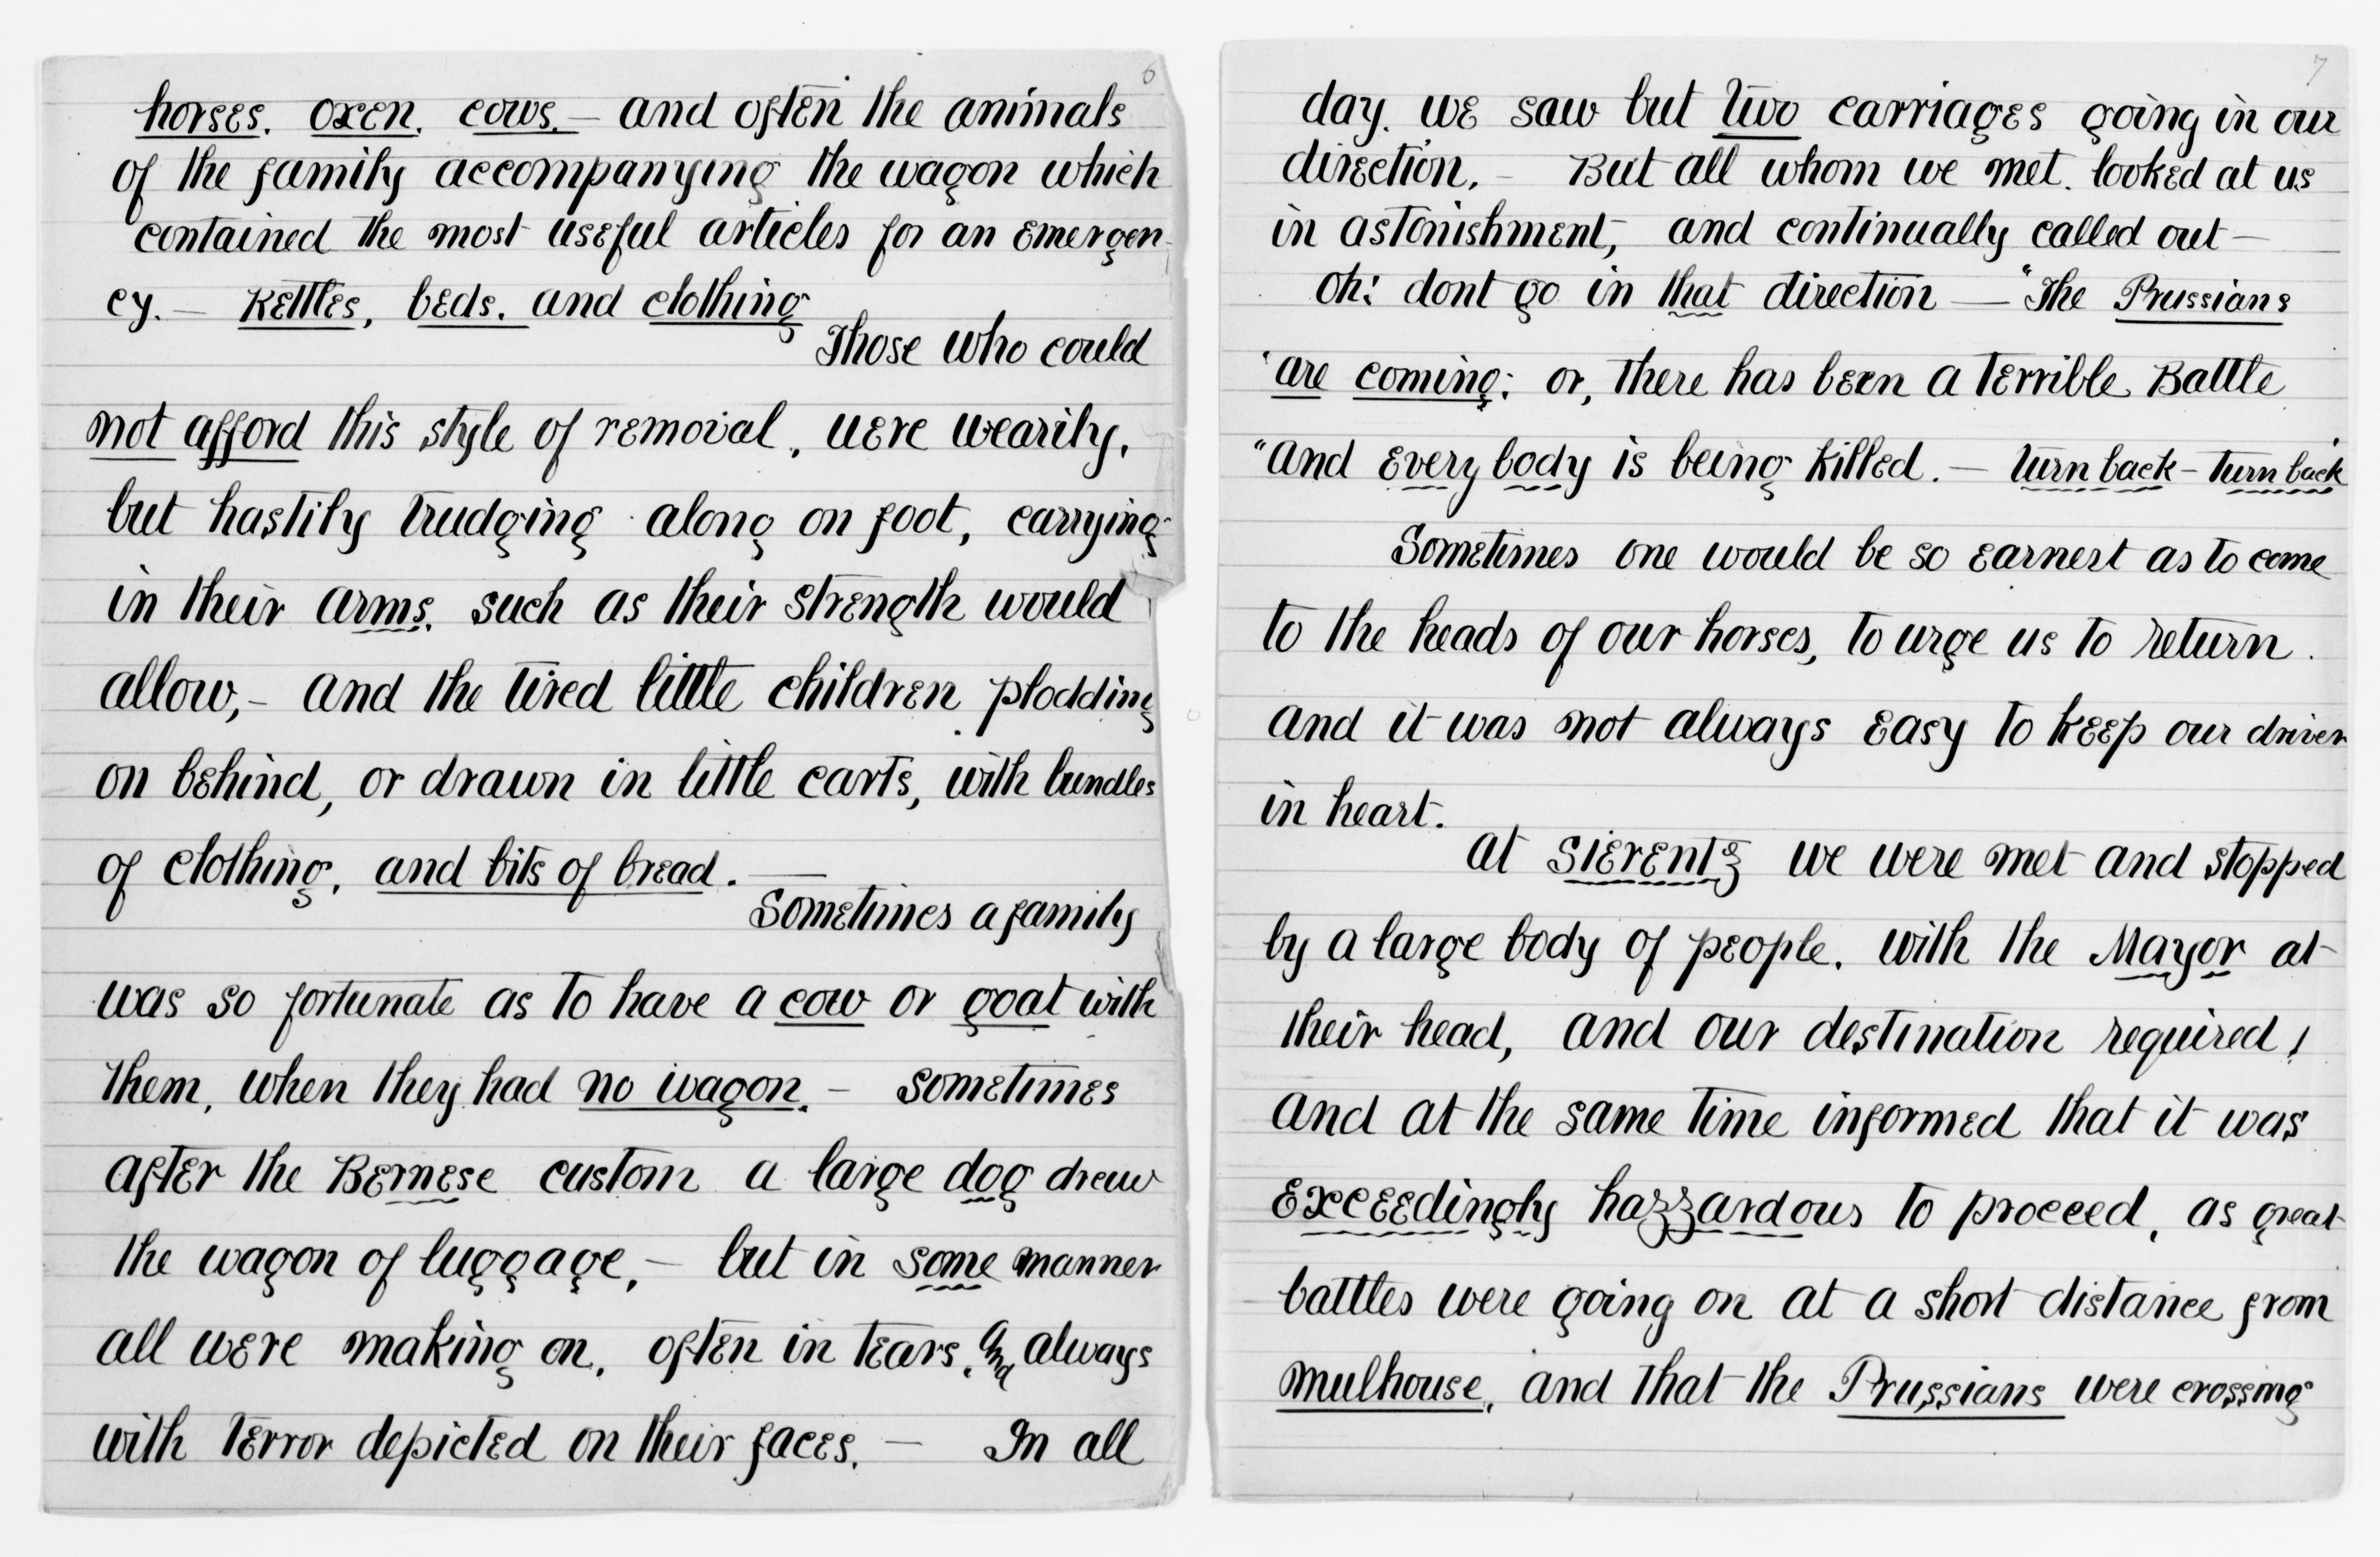 6
horses. oxen. cows. — and often the animals
of the family accompanying the wagon which
contained the most useful articles for an emergen-
cy. — Kettles, beds. and clothing
Those who could
not afford this style of removal, were wearily,
but hastily trudging along on foot, carrying
in their arms. such as their strength would
allow, - and the tired little children plodding
on behind, or drawn in little carts, with bundles
of clothing, and bits of bread. —
Sometimes a family
was so fortunate as to have a cow or goat with
them, when they had no wagon. - sometimes
after the Bernese custom a large dog drew
the wagon of luggage, - but in some manner
all were making on, often in tears, and always
with terror depicted on their faces. — In all
7
day. we saw but two carriages going in our
direction. - But all whom we met. looked at us
in astonishment, and continually called out —
Oh! dont go in that direction — "The Prussians
'are coming; or, there has been a terrible Battle
"and everybody is being killed. — turn back - turn back'
Sometimes one would be so earnest as to come
to the heads of our horses, to urge us to return.
and it was not always easy to keep our driver
in heart.
At Sierentz we were met and stopped
by a large body of people. with the Mayor at
their head, and our destination required!
and at the same time informed that it was
exceedingly hazzardous to proceed, as great
battles were going on at a short distance from
Mulhouse, and that the Prussians were crossing